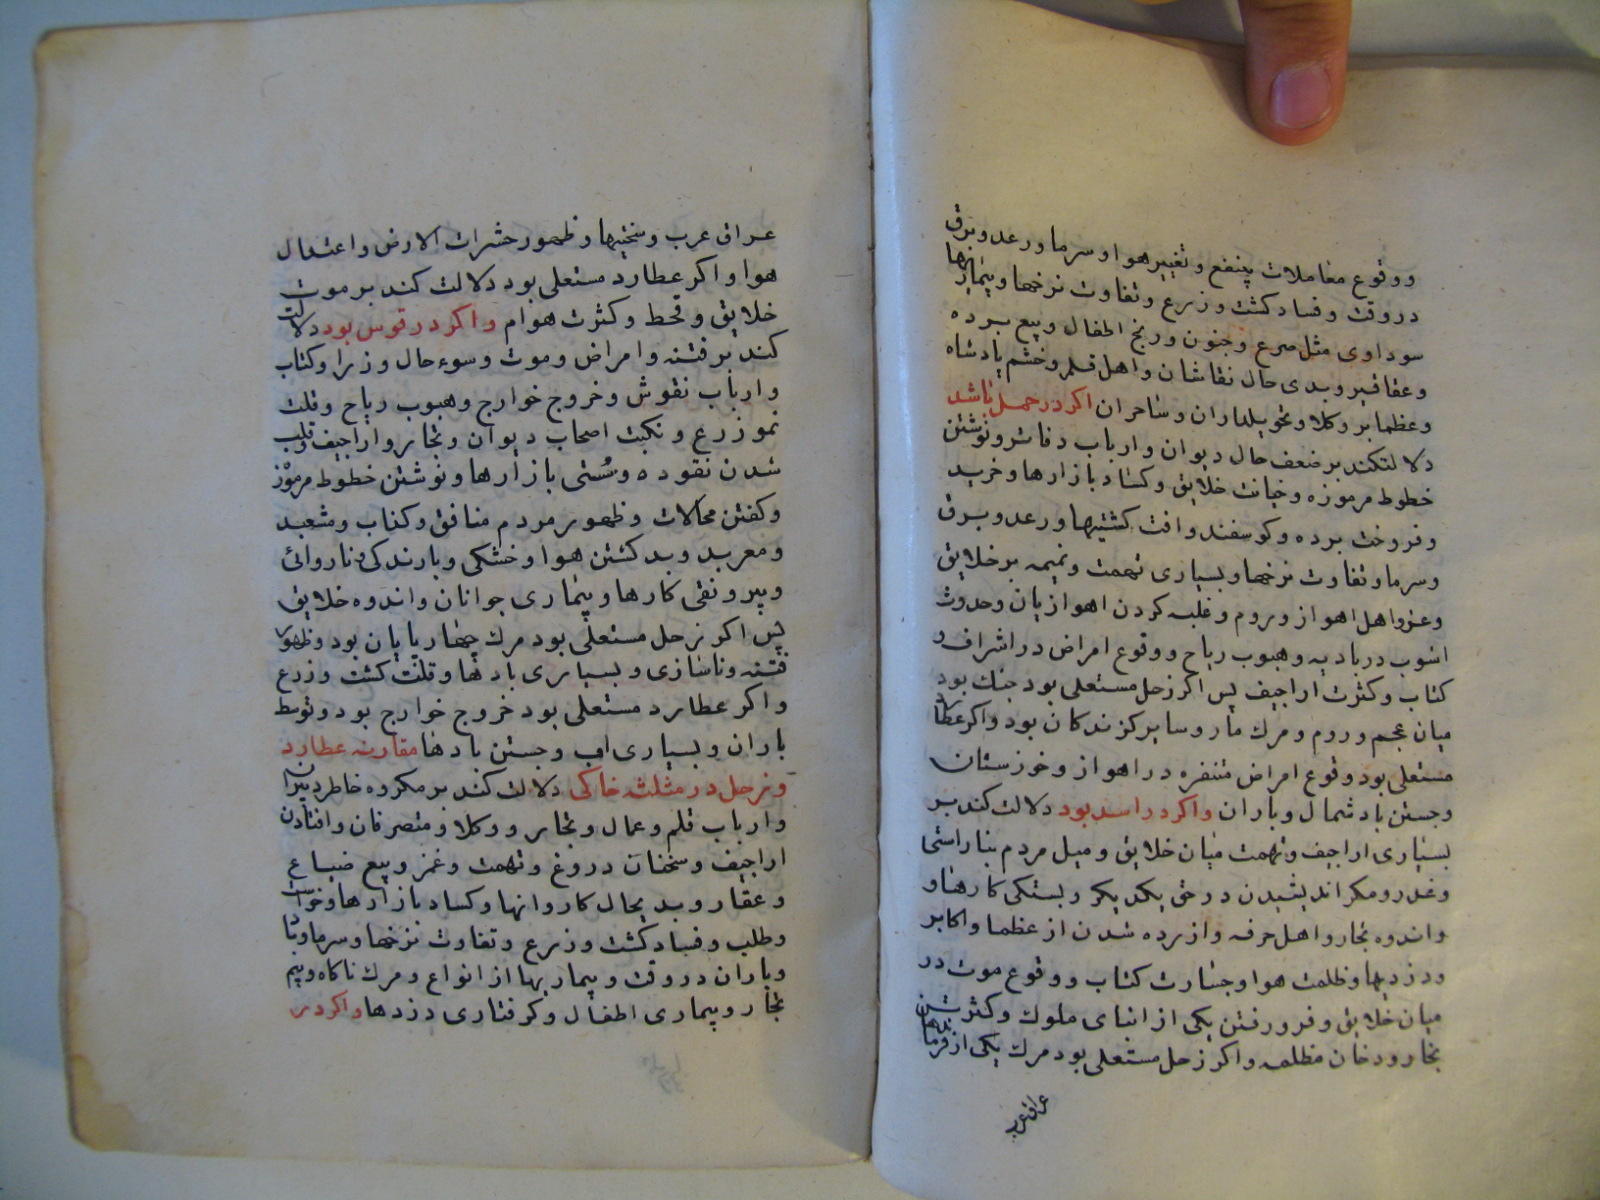 ووقوع معاملات پنفع و تغییر هوا و سرما و رعد و برق
در وقت و فساد کشت و زرع و تفاوت نرخها و بیماریها
سوداوی مثل صرع و جنون و رنج اطفال و بیع برده
و عقاقیر و بدی حال نقاشان و اهل قلم و خشم پادشاه
و عظما بر وکلا و تحویلداران و ساحران اکر در حمل باشد
دلالتکند بر ضعف حال دیوان و ارباب دفاتر و نوشتن
خطوط مرموزه و خیانت خلایق و کساد بازارها و خرید
و فروخت برده و کوسفند و افت کشتیها و رعد و برق
و سرما و تفاوت نرخها و بسیاری تهمت و نمیمه بر خلایق
و عز و اهل اهواز و روم و غلبه کردن اهوازیان و حدوث
اشوب در بادیه و هبوب ریاح و وقوع امراض در اشراف و
کتاب و کثرت اراجیف پس اکر زحل مستعلی بود جنك بود
میان عجم و روم و مرك مار و سایر کزندکان بود و اکر عطارد
مستعلی بود وقوع امراض متنفره در اهواز و خوزستان
و جستن باد شمال و باران و اکر در اسد بود دلالت کند بر
بسیاری اراجیف و تهمت میان خلایق و میل مردم بناراستی
و غدر و مکر اندیشیدن در حق یکدیکر و بستکی کارها و
و اندوه تجار و اهل حرفه و ازرده شدن از عظما و اکابر
و دزدیها و ظلمت هوا و جسارت کتاب و وقوع موت در
میان خلایق و فرو رفتن یکی از ابنای ملوك و کثرت
بخار و دخان مظلمه و اکر زحل مستعلی بود مرك یکی از
عراق عرب
عراق عرب و سختیها و ظهور حشرات الارض و اعتدال
هوا و اکر عطارد مستعلی بود دلالت کند بر موت
خلایق و قحط و کثرت هوام و اکر در قوس بود دلالت
کند بر فتنه و امراض و موت و سوء حال وزرا و کتاب
و ارباب نقوش و خروج خوارج و هبوب ریاح و قلت
نمو زرع و نکبت اصحاب دیوان و تجار و اراجیف و قلب
شدن نقوده و سُستی بازارها و نوشتن خطوط مرموز
و کفتن محالات و ظهور مردم منافق و کذاب و مشعبد
و معربد و بد کشتن هوا و خشکی و بارندکی و ناروائ
و بیرونقی کارها و بیماری جوانان و اندوه خلایق
پس اکر زحل مستعلی بود مرك چهارپایان بود و ظهور
فتنه و ناسازی و بسیاری بادها و قلت کشت و زرع
و اکر عطارد مستعلی بود خروج خوارج بود و توسط
باران و بسیاری اب و جستن بادها مقارنه عطارد
و زحل در مثلثه خاکی دلالت کند بر مکروه خاطر دبیران
و ارباب قلم و عمال و تجار و وکلا و متصرفان و افتادن
اراجیف و سخنان دروغ و تهمت و غمز و بیع ضیاع
و عقار و بد بحال کاروانها و کساد بازارها و خواست
و طلب و فساد کشت و زرع و تفاوت نرخها و سرما و
و باران در وقت و بیماریها از انواع و مرك ناکاه و بیم
تجار و بیماری اطفال و کرفتاری دزدها و اکر در